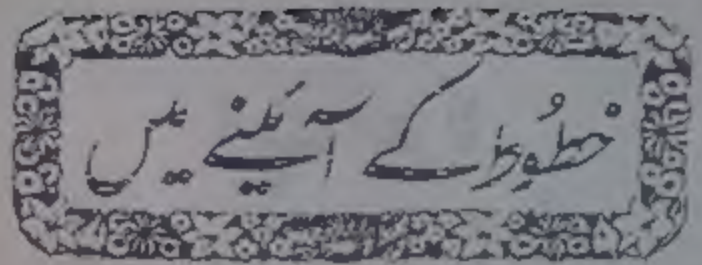 خطُوط کے آئینے میں